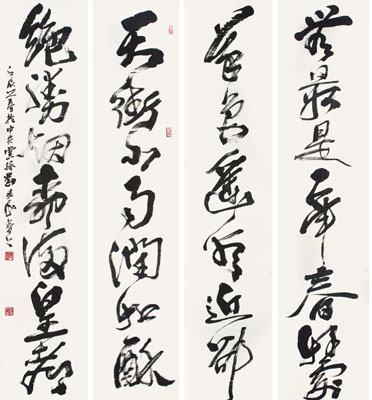 天街小雨潤如酥
草色遥看近却
無最是一年春好處
絕勝烟柳滿皇都
壬辰之春於中央黨校